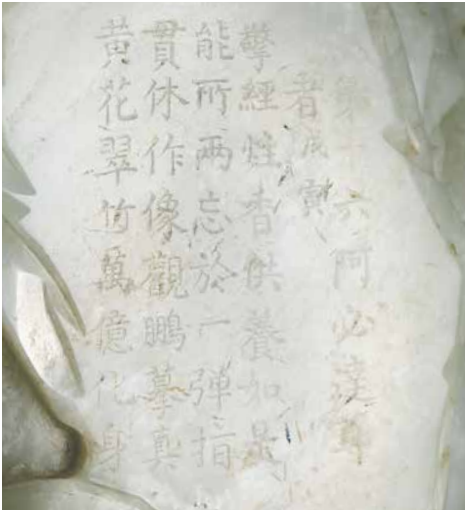 第十六阿必達尊
者戊寅
擎經炷香供養如是
能所兩忘於一彈指
貫休作像觀鵬摹真
黃花翠竹萬億化身